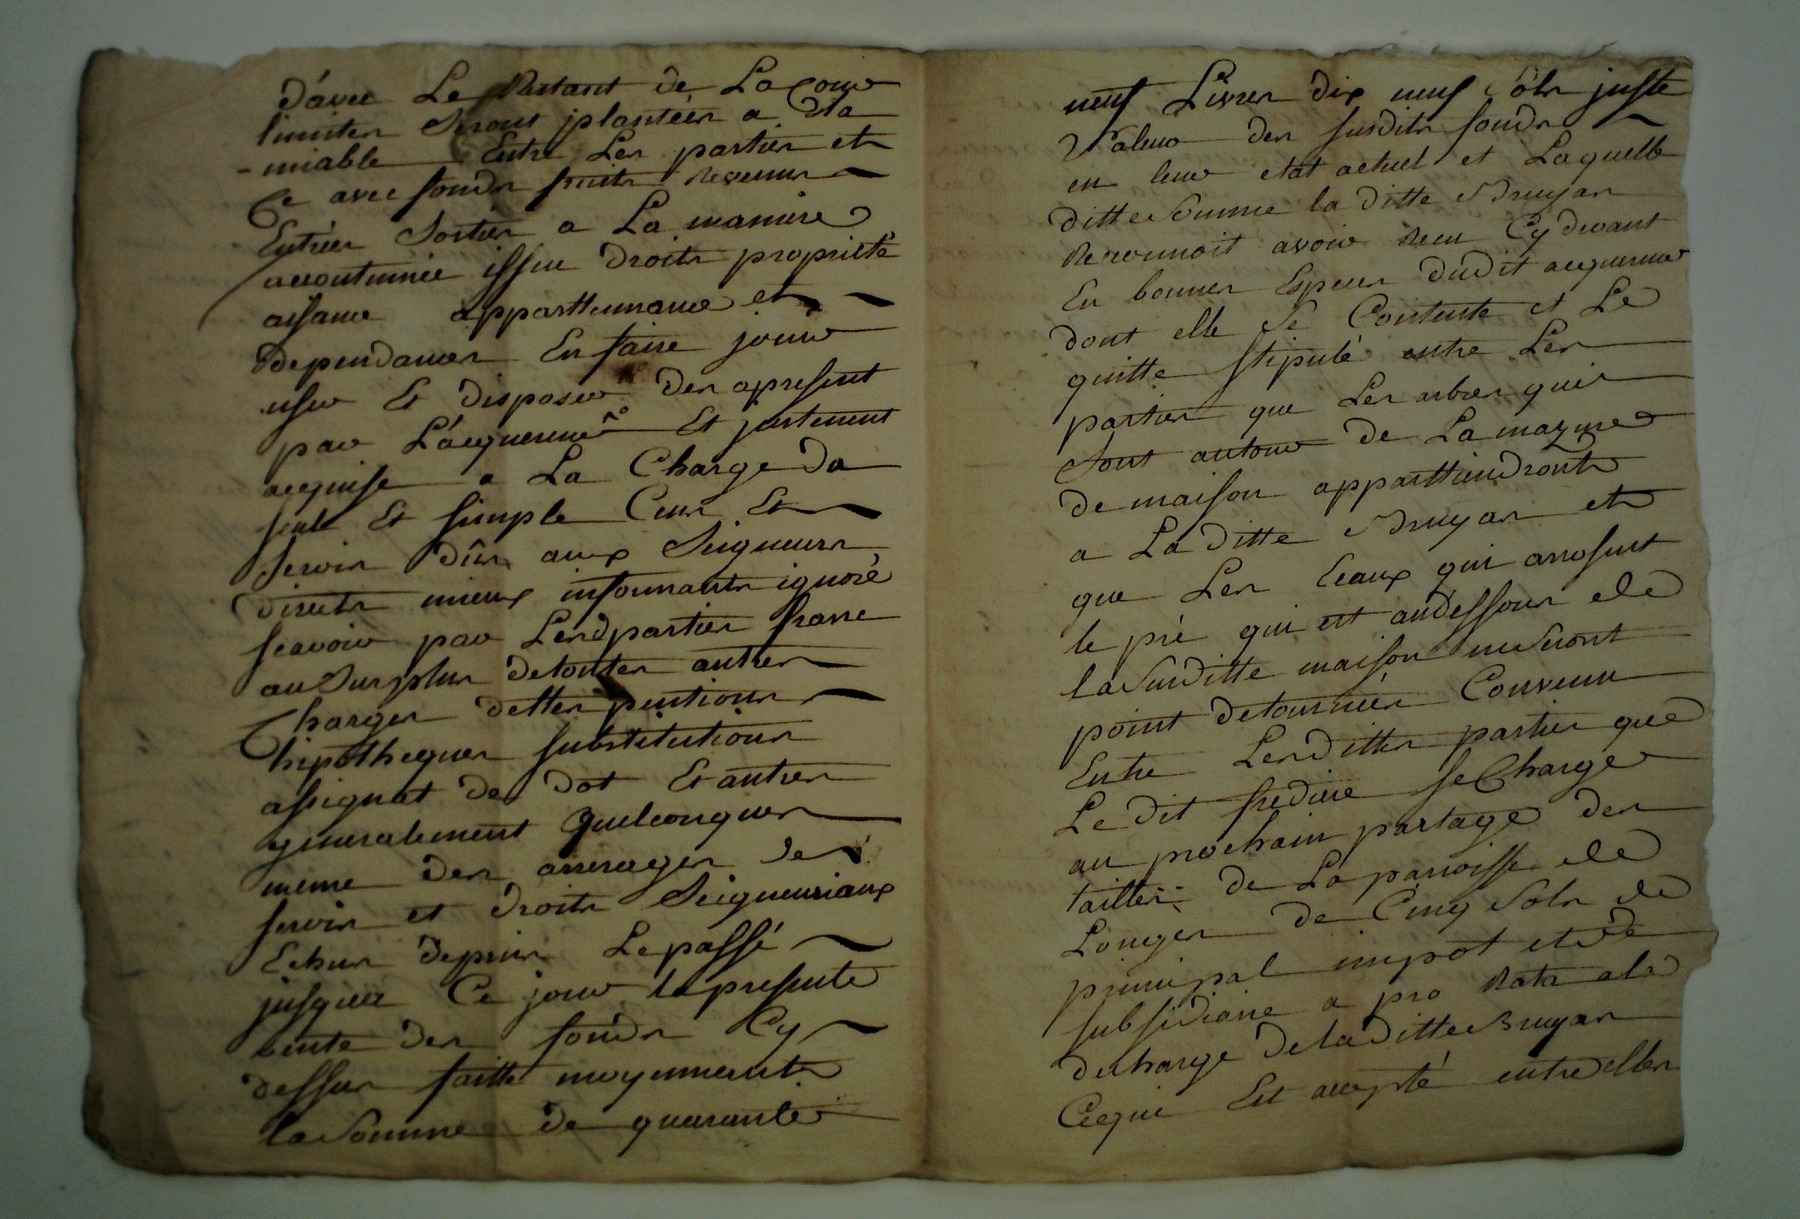 d'avec Le Restant de La Cour
limites Seront plantées a La
-miable Entre Les parties et
Ce avec fonds fruits Revenus
Entrées Sorties a La maniere
accoutumée issue droits proprieté
aisance appartenance et
dependances En faire jouir
user Et disposer des apresent
par L'acquereur Et justement
acquise a La Charge du
seul Et simple Cens Et
servis dûs aux Seigneurs
directs mieux informants ignoré
scavoir par Lesd parties franc
au Surplus de toutes autres
Charges dettes pentions
hipotheques substitutions
assignat de dot Et autres
generalement quelconques
meme des arrerages de
servis et droits Seigneuriaux
Echus depuis Le passé
jusques Ce jour la presente
vente des fonds Cy
dessus faitte moyennant
la Somme de quarante
neuf Livres dix neuf Sols juste
Valeur des susdits fonds
en leur etat actuel et Laquelle
ditte Somme la ditte Bruyas
Reconnoit avoir Receu Cy devant
En bonnes Especes dudit acquereur
dont elle Se Contente et Le
quitte stipulé entre Les
parties que Les arbres qui
Sont autour de La mazure
de maison appartiendronts
a La ditte Bruyas et
que Les Eaux qui arrosent
le pré qui est au dessous de
la Susditte maison ne Seront
point detournées Convenu
Entre Lesdittes parties que
Le dit se Charge
au prochain partage des
tailles de La parroisse de
Longes de Cinq Sols de
principal impot et de
subsidiaire a pro Rata a la
decharge de la ditte Bruyas
Ce qui Est accepté entre elles